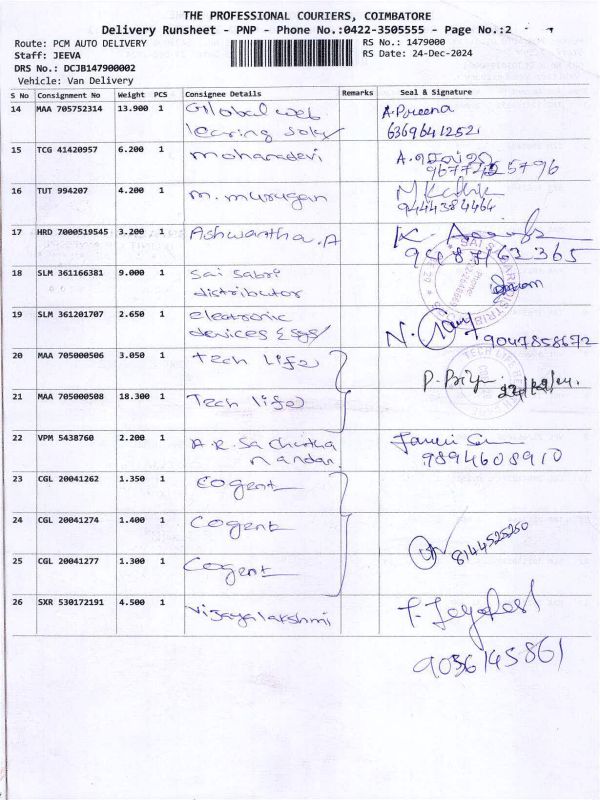 THE PROFESSIONAL COURIERS, COIMBATORE
Delivery Runsheet - PNP - Phone No.:0422-3505555 - Page No.:2
Route: PCM AUTO DELIVERY
RS No.: 1479000
Staff: JEEVA
RS Date: 24-Dec-2024
DRS No.: DCJB147900002
Vehicle: Van Delivery
S No Consignment No Weight PCS Consignee Details Remarks Seal & Signature
14 MAA 705752314 13.900 1 Global web A.Poreena
learing 6369641252
15 TCG 41420957 6.200 1 mohanadevi
16 TUT 994207 4.200 1 m. murugan
9444384464
17 HRD 7000519545 3.200 1 Ashwantha.A
9487162365
18 SLM 361166381 9.000 1 Sai Sabri
distributor
19 SLM 361201707 2.650 1 electronic
devices & sys 9047858672
20 MAA 705000506 3.050 1 Tech life
21 MAA 705000508 18.300 1 Tech life
22 VPM 5438760 2.200 1 A.R. Sachutha
nandan. 9894608910
23 CGL 20041262 1.350 1 Cogent
24 CGL 20041274 1.400 1 Cogent
8144525250
25 CGL 20041277 1.300 1 Cogent
26 SXR 530172191 4.500 1 Vijayalakshmi
9036145861